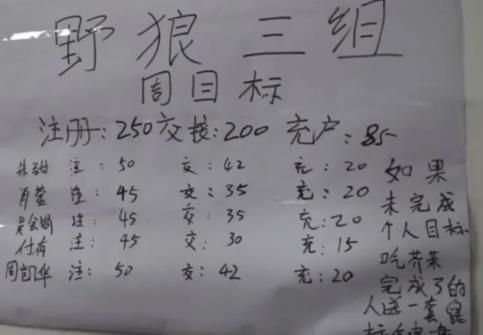 野狼三组
周目标
注册:250 交接:200 充户:85
注:50 交:42 充:20
肖莹 注:45 交:35 充:20
注:45 交:35 充:20
付有 注:45 交:30 充:15
周凯华 注:50 交:42 充:20
如果
未完成
个人目标
吃芥菜
完成了的
人送一套